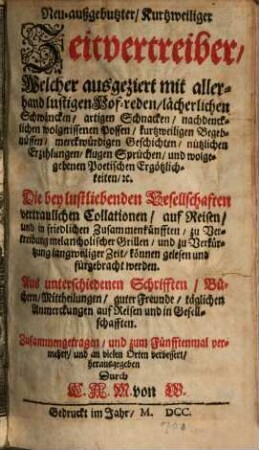 Neu-außgebutzter/ Kurtzweiliger
Zeitvertreiber/
Welcher ausgeziert mit aller-
hand lustigen Hof-reden/lächerlichen
Schwäncken/ artigen Schnacken/ nachdenck-
lichen wolgerissenen Possen/ kurtzweiligen Begeb-
nüssen/ merckwürdigen Geschichten/ nützlichen
Erzehlungen/ klugen Sprüchen/ und wolge-
gebenen Poetischen Ergötzlich-
keiten/ ꝛc.
Die bey lustliebenden Gesellschaften
vertraulichen Collationen/ auf Reisen/
und in friedlichen Zusammenkünfften/ zu Ver-
treibung melancholischer Grillen/ und zu Verkür-
tzung langweiliger Zeit/ können gelesen und
fürgebracht werden.
Aus unterschiedenen Schrifften/ Bü-
chern/Mittheilungen/ guter Freunde/ täglichen
Anmerckungen auf Reisen und in Gesell-
schafften.
Zusammengetragen/ und zum Fünfftenmal ver-
mehret/ und an vielen Orten verbessert/
herausgegeben
Durch
C. A. M. von W.
Gedruckt im Jahr/ M. DCC.